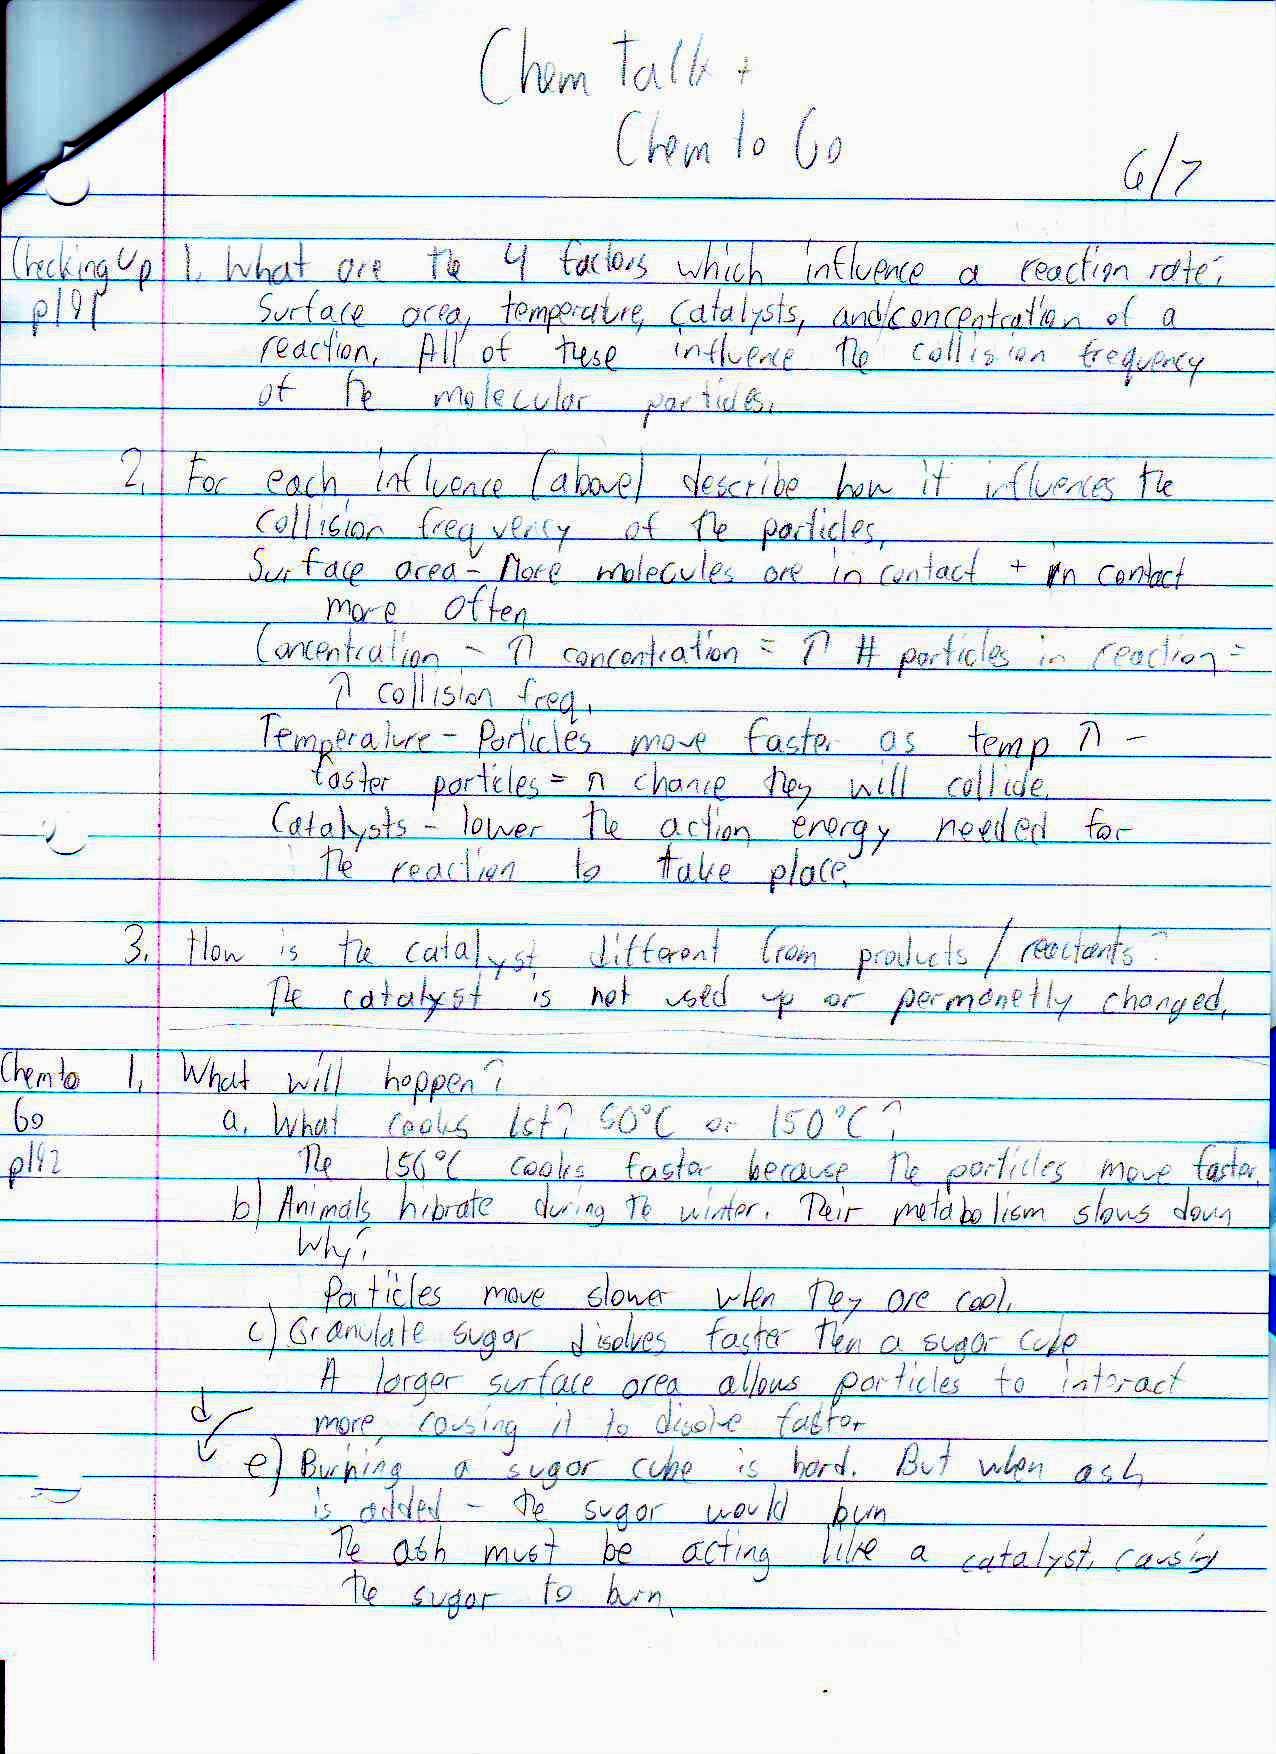 Chem Talk +
Chem to Go
6/7
Checking Up 1. What are the 4 factors which influence a reaction rate?
p191 Surface area, temperature, catalysts, and/concentration of a
reaction. All of these influence the collision frequency
of the molecular particles.
2. For each influence (above) describe how it influences the
collision frequency of the particles.
Surface area - More molecules are in contact + in contact
more often
Concentration - ↑ concentration = ↑ # particles in reaction =
↑ collision freq.
Temperature - Particles move faster as temp ↑ -
faster particles = ↑ chance they will collide.
Catalysts - lower the action energy needed for
the reaction to take place.
3. How is the catalyst different from products / reactants?
The catalyst is not used up or permanetly changed.
Chem to 1. What will happen?
Go a. What cooks 1st? 50°C or 150°C?
p192 The 150°C cooks faster because the particles move faster.
b) Animals hibrate during the winter. Their metabolism slows down
Why?
Particles move slower when they are cool.
c) Granulate sugar disolves faster then a sugar cube
A larger surface area allows particles to interact
d more, causing it to disolve faster
e) Burning a sugar cube is hard. But when ash
is added - the sugar would burn
The ash must be acting like a catalyst, causing
the sugar to burn.